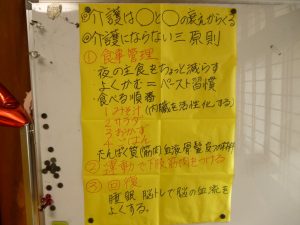 ◎介護は〇と〇の衰えからくる
◎介護にならない三原則
①食事管理
夜の主食をちょっと減らす
よくかむ=ペースト習慣
・食べる順番
1 みそ汁(内臓を活性化する)
2 サラダ
3 おかず
4 ごはん
たんぱく質(筋肉 血液 骨 髪
②運動で下肢筋肉をつける
③回復
睡眠 脳トレで脳の血流を
よくする。